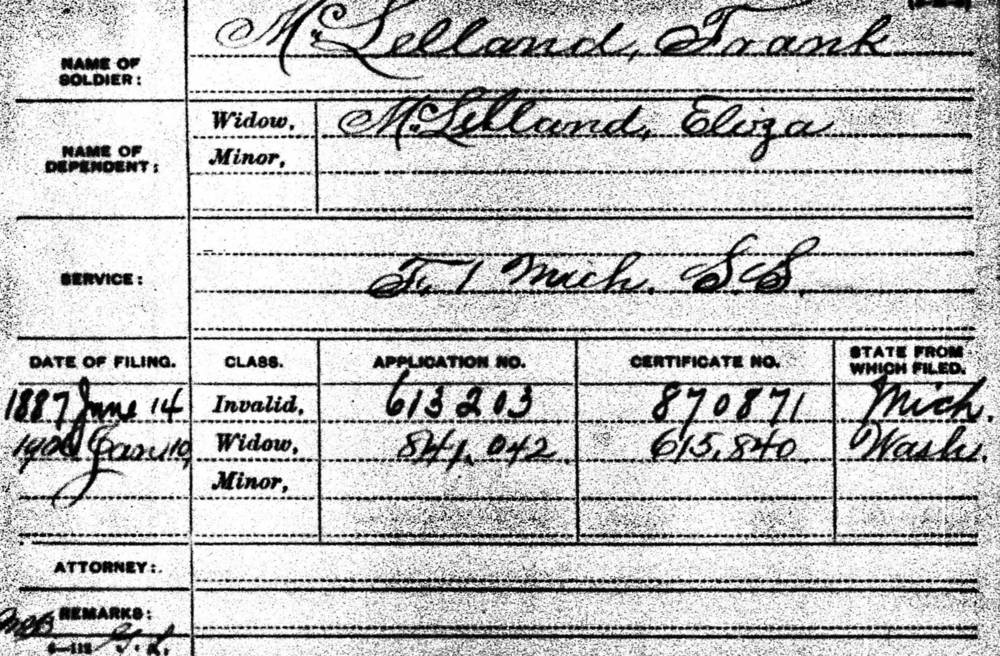 McLelland, Frank
NAME OF
SOLDIER:
Widow, McLelland, Eliza
NAME OF
DEPENDENT:
Minor,
SERVICE: F. 1 Mich. S.S.
DATE OF FILING. CLASS. APPLICATION NO. CERTIFICATE NO. STATE FROM
WHICH FILED.
1887 June 14 Invalid, 613203 870871 Mich.
Widow, 841,042 615,840 Wash.
Minor,
ATTORNEY:
REMARKS: